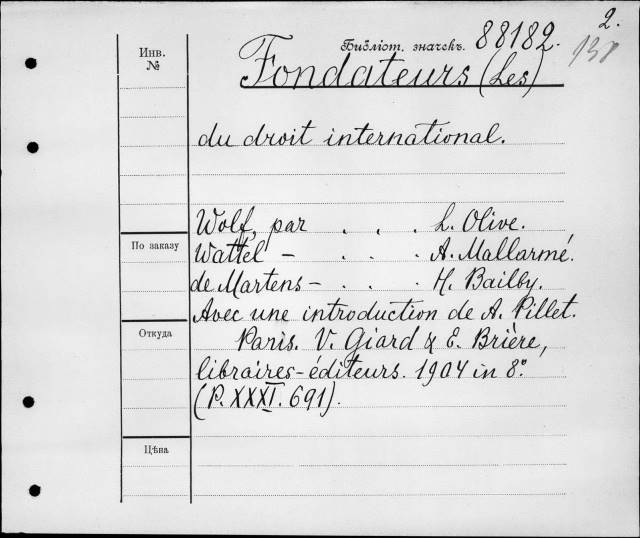 2.
Библіот. значекъ. 88182.
Инв.
№
Fondateurs (Les)
du droit international.
Wolf, par . . . L. Olive.
По заказу
Wattel – . . . A. Mallarmé.
de Martens – . . H. Bailby.
Avec une introduction de A. Pillet.
Откуда
Paris. V. Giard & E. Brière,
libraires-éditeurs. 1904 in 8°.
(P. XXXI. 691).
Цѣна